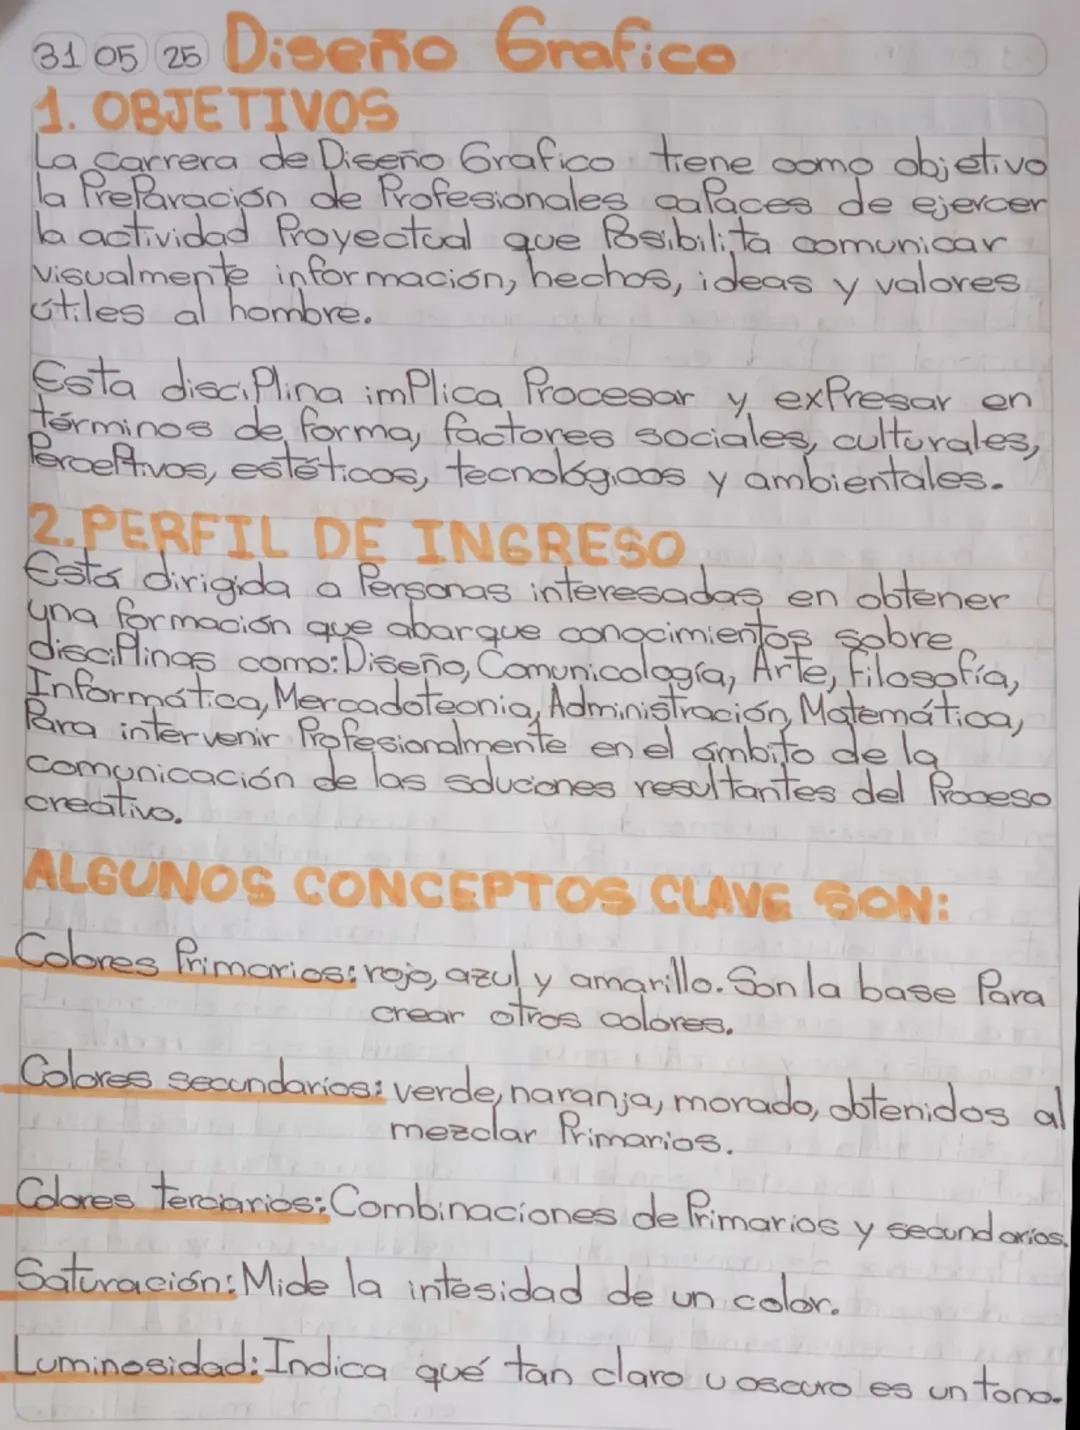 31 05 25 Diseño Grafico
1. OBJETIVOS
La carrera de Diseño Grafico tiene como objetivo
la Preparación de Profesionales capaces de ejercer
la actividad Proyectual que Posibilita comunicar
visualmente información, hechos, ideas y valores
útiles al hombre.
Esta disciplina implica Procesar y exPresar en
términos de forma, factores sociales, culturales,
Perceptivos, estéticos, tecnológicos y ambientales.
2. PERFIL DE INGRESO
Está dirigida a Personas interesadas en obtener
una formación que abarque conocimientos sobre
disciplinas como: Diseño, Comunicología, Arte, filosofía,
Informática, Mercadotecnia, Administración, Matemática,
Para intervenir Profesionalmente en el ámbito de la
comunicación de las soluciones resultantes del Proceso
creativo.
ALGUNOS CONCEPTOS CLAVE SON:
Colores Primarios: rojo, azul y amarillo. Son la base Para
crear otros colores.
Colores secundarios: verde, naranja, morado, obtenidos al
mezclar Primarios.
Colores terciarios: Combinaciones de Primarios y secundarios.
Saturación: Mide la intesidad de un color.
Luminosidad: Indica qué tan claro u oscuro es un tono.